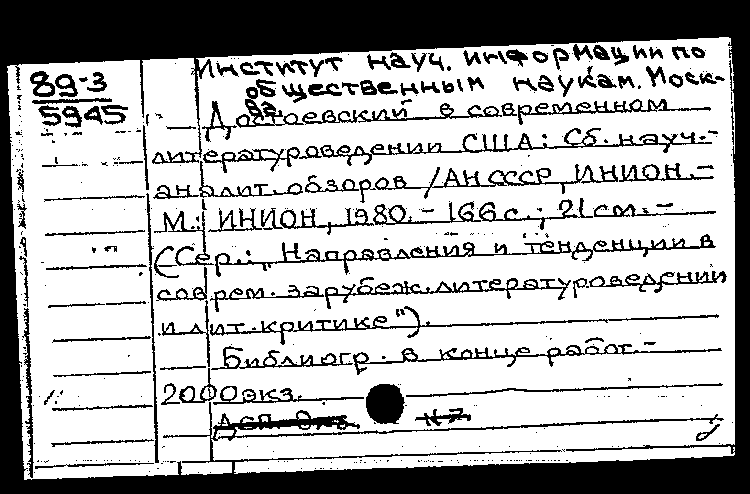 89-3
5945
Институт науч. информации по
общественным наукам. Моск-
ва.
Достоевский в современном
литературоведении США: Сб. науч.-
аналит. обзоров / АН СССР, ИНИОН. –
М.: ИНИОН, 1980. – 166 с.; 21 см. –
(Сер.: „Направления и тенденции в
соврем. зарубеж. литературоведении
и лит. критике").
Библиогр. в конце работ. –
2000 экз.